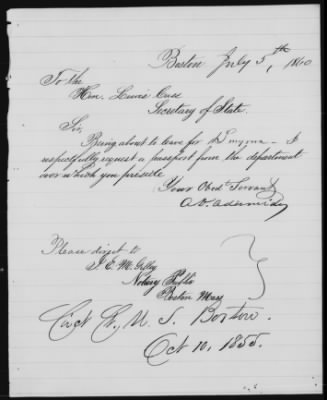 Boston July 5,th 1860
To the
Hon. Lewis Cass
Secretary of State.
Sir,
Being about to leave for Smyrna - I
respectfully request a passport from the department
over which you preside
Your Obed Servant
Please direct to
J. E. M. Gilley
Notary Public
Boston Mass
Circt Ct, U. S. Boston.
Oct 10, 1855.